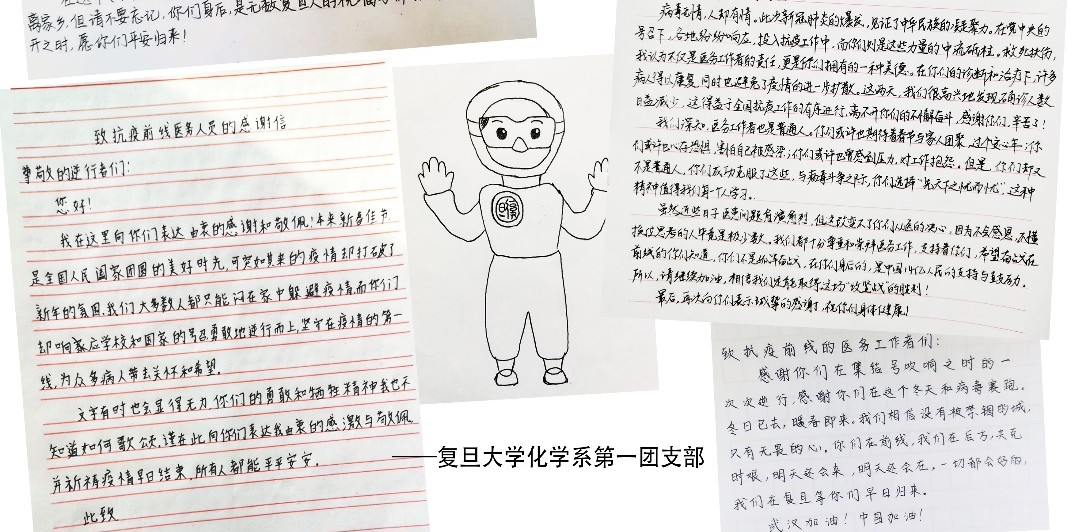 离家乡,但请不要忘记,你们身后,是无数复旦人的祝
开之时,愿你们平安归来!
致抗疫前线医务人员的感谢信
尊敬的逆行者们:
您好!
我在这里向你们表达由衷的感谢和敬佩!本来新春佳节
是全国人民阖家团圆的美好时光,可突如其来的疫情却打破了
新年的氛围,我们大多数人都只能闷在家中躲避疫情,而你们
却响应学校和国家的号召勇敢地逆行而上,坚守在疫情的第一
线,为众多病人带去关怀和希望。
文字有时也会显得无力,你们的勇敢和牺牲精神我也不
知道如何歌颂,谨在此向你们表达我由衷的感激与敬佩,
并祈祷疫情早日结束,所有人都能平平安安。
此致
病毒无情,人却有情。此次新冠肺炎的爆发,见证了中华民族的凝聚力。在党中央的
号召下,各地纷纷响应,投入抗疫工作中,而你们则是这些力量的中流砥柱。救死扶伤,
我认为不仅是医务工作者的责任,更是你们拥有的一种美德。在你们的诊断和治疗下,许多
病人得以康复,同时也避免了疫情的进一步扩散。这两天,我们很高兴地发现确诊人数
日益减少,这得益于全国抗疫工作的有序进行,离不开你们的不懈奋斗,感谢你们,辛苦了!
我们深知,医务工作者也是普通人。你们或许也期待着春节与家人团聚,过个安心年;你
们或许也心存恐惧,害怕自己被感染;你们或许也曾感到压力,对工作抱怨。但是,你们却又
不是普通人,你们成功克服了这些,与病毒斗争之际,你们选择“先天下之忧而忧”,这种
精神值得我们每个人学习。
虽然近些日子医患问题有演剧烈,但这改变不了你们从医的决心,因为不会感恩、不懂
换位思考的人毕竟是极少数。我们都十分尊重和崇拜医务工作,支持着你们,希望奋战在
前线的你们知道,你们不是孤军奋战,在你们身后的,是中国14亿人民的支持与鼓励。
所以,请继续加油,相信我们定能取得这场“攻坚战”的胜利!
最后,再次向你们表示诚挚的感谢,祝你们身体健康!
致抗疫前线的医务工作者们:
感谢你们在集结号吹响之时的一
次次逆行,感谢你们在这个冬天和病毒赛跑。
冬日已去,暖春即来。我们相信没有被禁锢的城,
只有无畏的心。你们在前线,我们在后方,共克
时艰,明天还会来,明天还会在,一切都会好的,
我们在复旦等你们早日归来。
武汉加油!中国加油!
——复旦大学化学系第一团支部